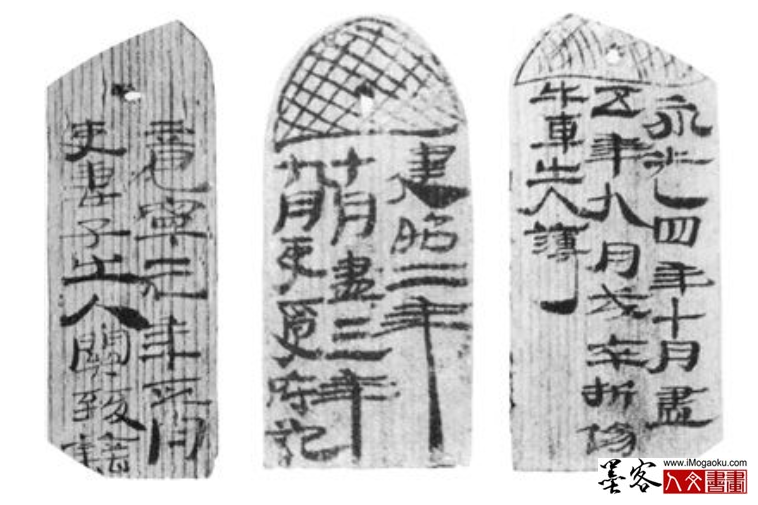 永光四年十月盡
五年九月戍卒折傷
牛車出入簿
建昭二年
十月盡三年
九月吏受府記
竟寧元年正月
吏妻子出入關致籍
墨客
www.iMogaoku.com
人文書畫